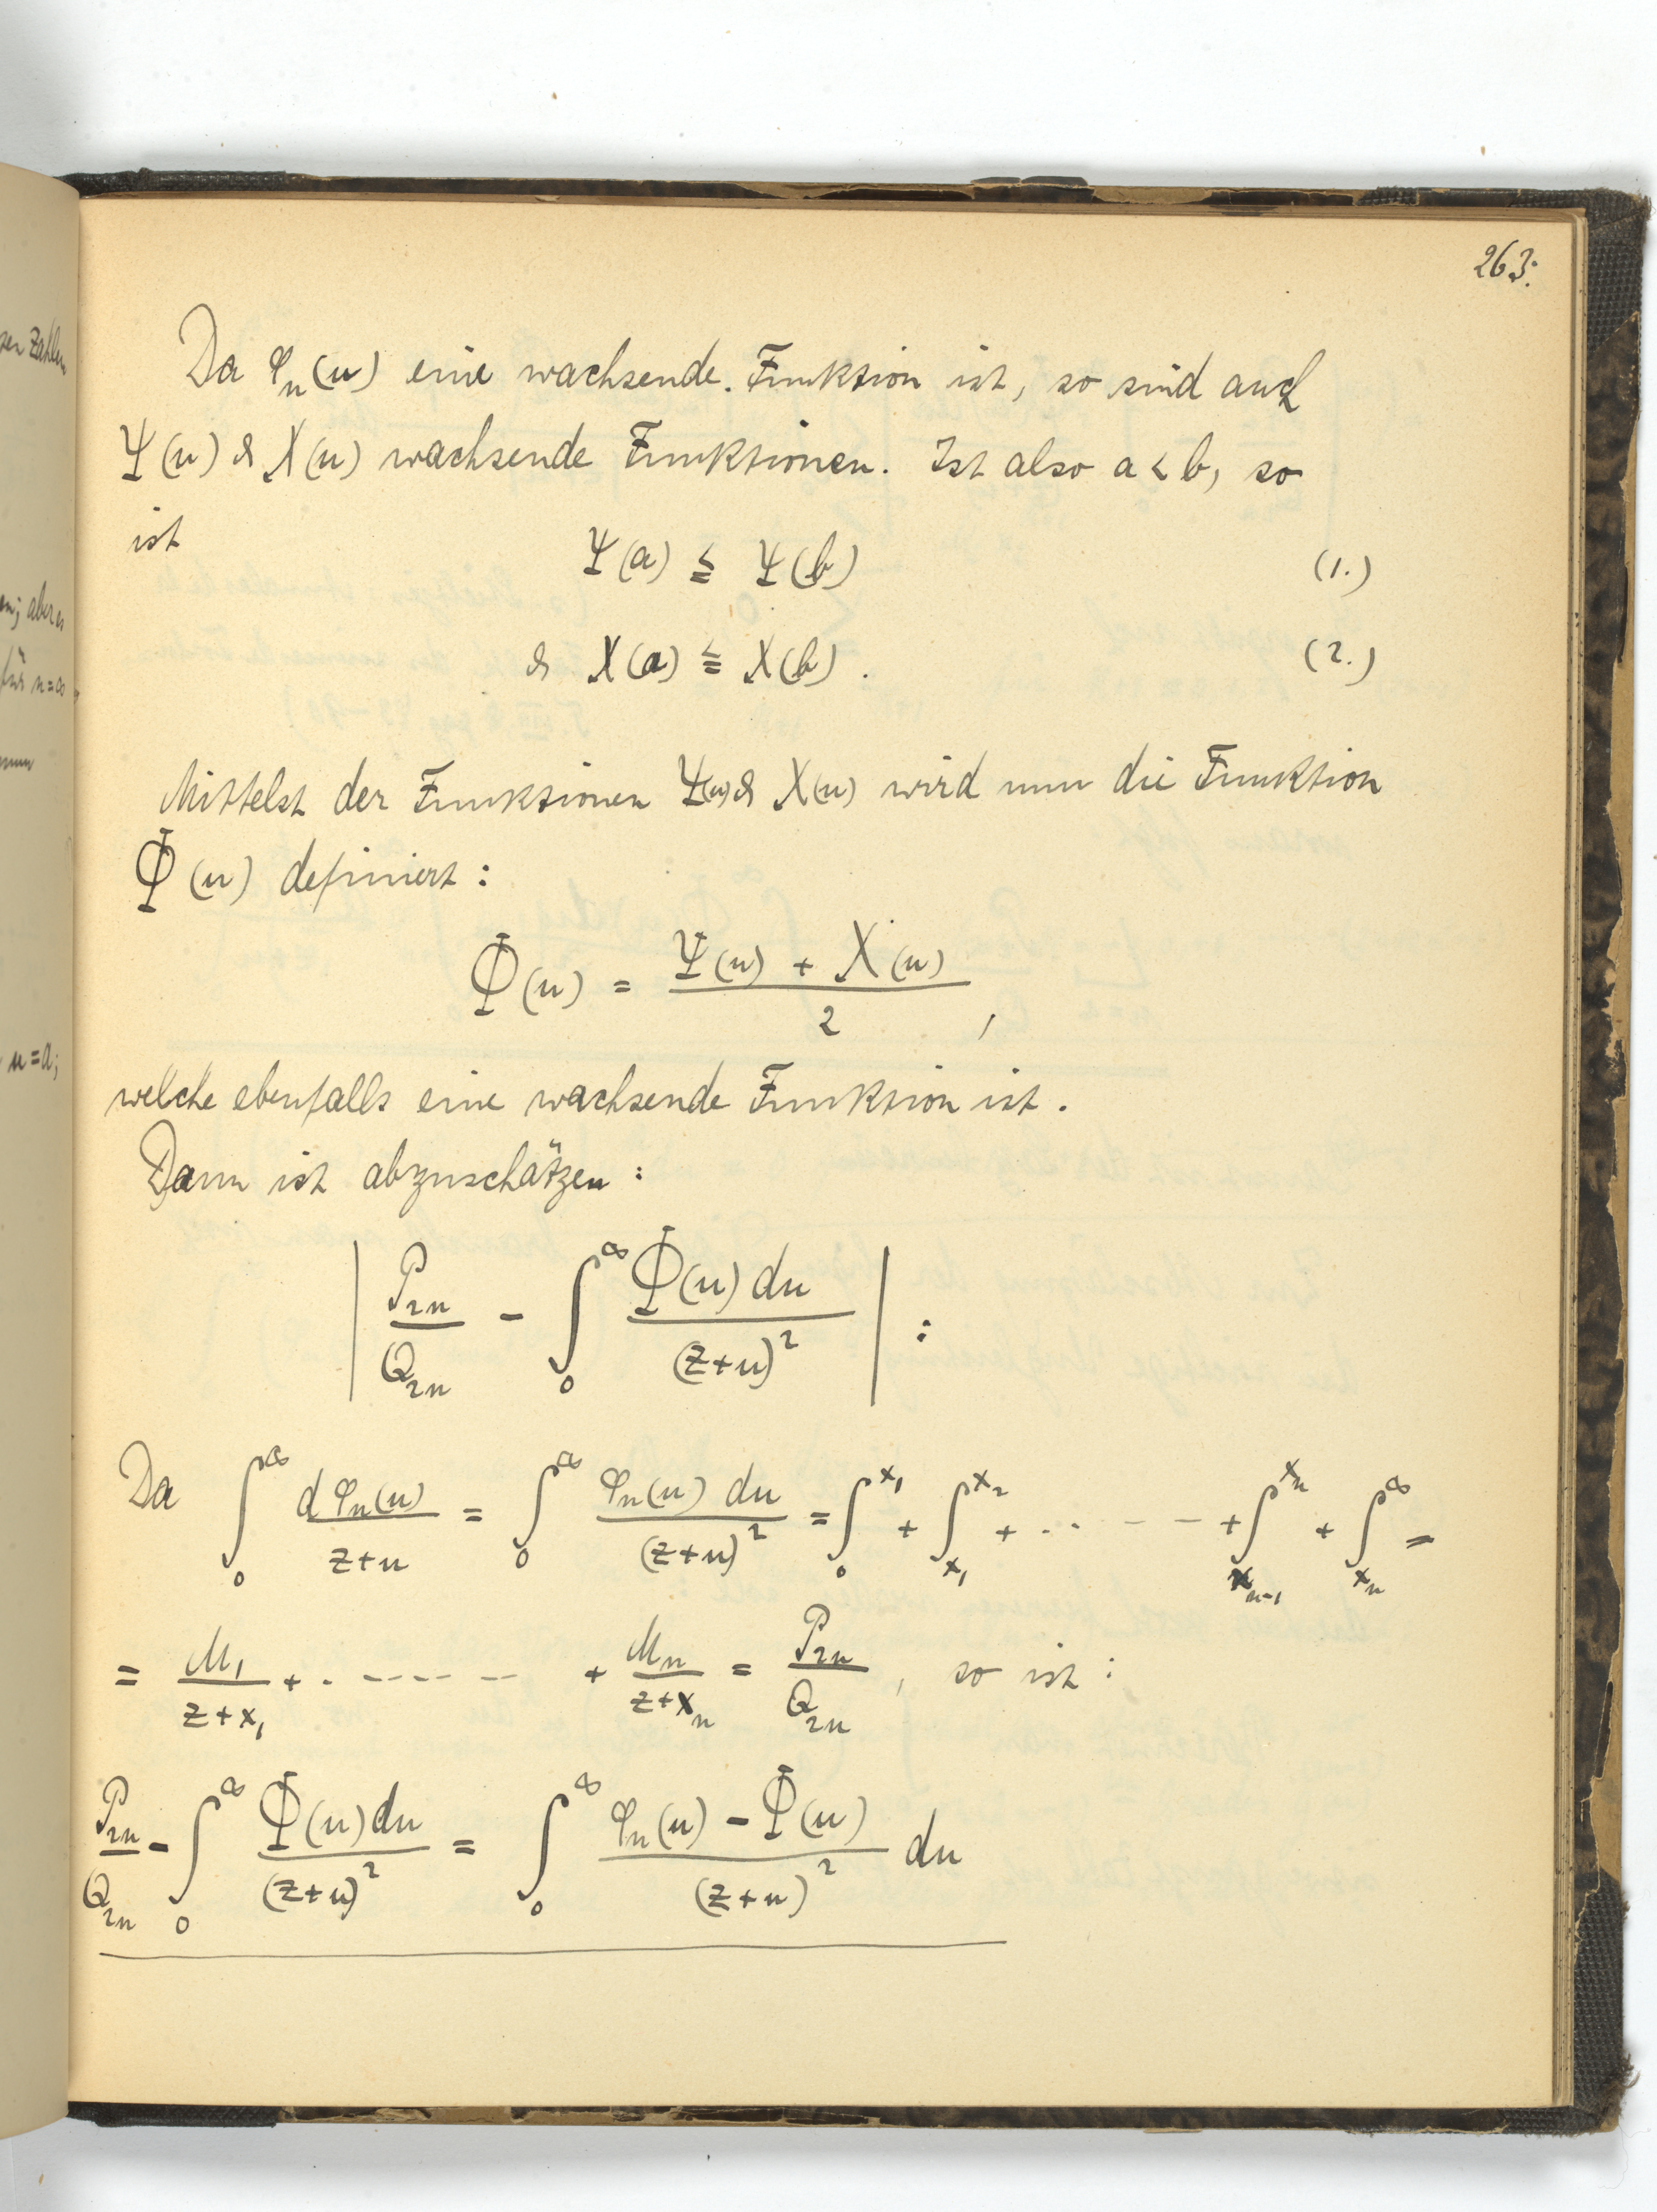 263.
Da φₙ(u) eine wachsende Funktion ist, so sind auch
Ψ(u) & X(u) wachsende Funktionen. Ist also a < b, so
ist
Ψ(a) ≦ Ψ(b) (1.)
& X(a) ≦ X(b). (2.)
Mittelst der Funktionen Ψ(u) & X(u) wird nun die Funktion
Φ(u) definiert:
Φ(u) = (Ψ(u) + X(u))/2 ,
welche ebenfalls eine wachsende Funktion ist.
Dann ist abzuschätzen:
| P₂ₙ/Q₂ₙ - ∫₀^∞ Φ(u) du/(z+u)² | :
Da ∫₀^∞ dφₙ(u)/(z+u) = ∫₀^∞ φₙ(u) du/(z+u)² = ∫₀^x₁ + ∫_x₁^x₂ + ..---- + ∫_xₙ₋₁^xₙ + ∫_xₙ^∞ =
= M₁/(z+x₁) + .------ + Mₙ/(z+xₙ) = P₂ₙ/Q₂ₙ , so ist:
P₂ₙ/Q₂ₙ - ∫₀^∞ Φ(u)du/(z+u)² = ∫₀^∞ (φₙ(u) - Φ(u))/(z+u)² du
Zahlen
; aber es
für n=∞
u=a;